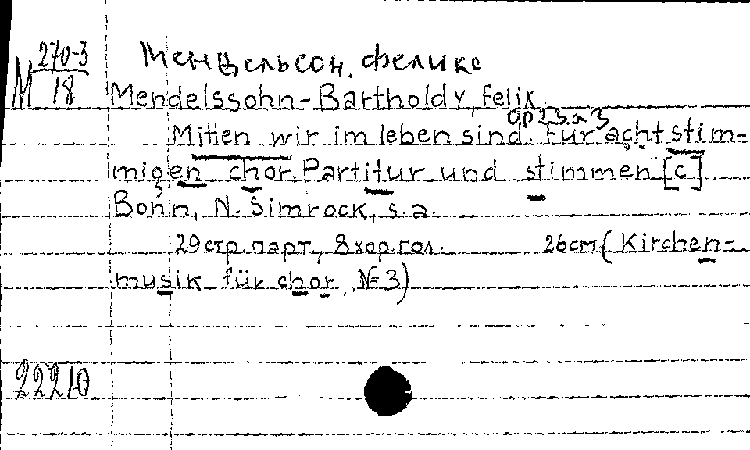 M 270-3
18
Мендельсон, Феликс
Mendelssohn-Bartholdy, Felix.
Op 23. № 3
Mitten wir im leben sind. Für acht stim-
migen chor. Partitur und stimmen [c]
Bonn, N. Simrock, s.a.
29 стр. парт., 8 хор. гол. 26 см (Kirchen-
musik für chor, № 3)
22210